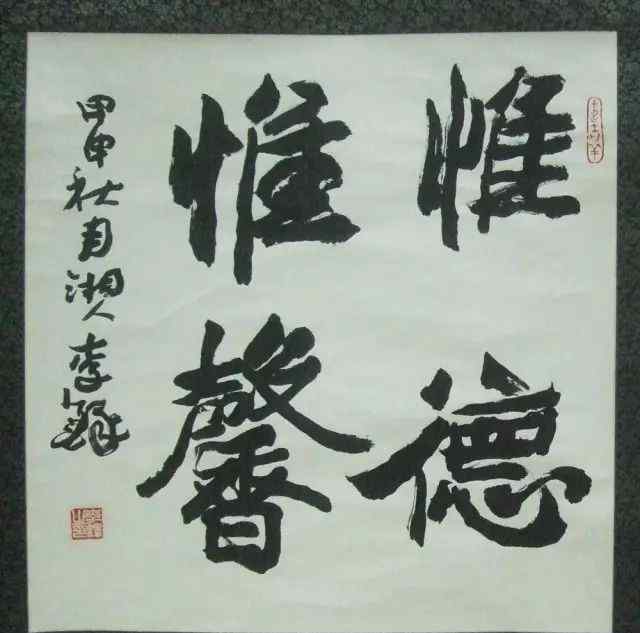 惟德
惟馨
甲申秋月湘人李鐸